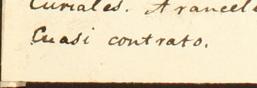 Curiales. Arancele
Cuasi contrato.